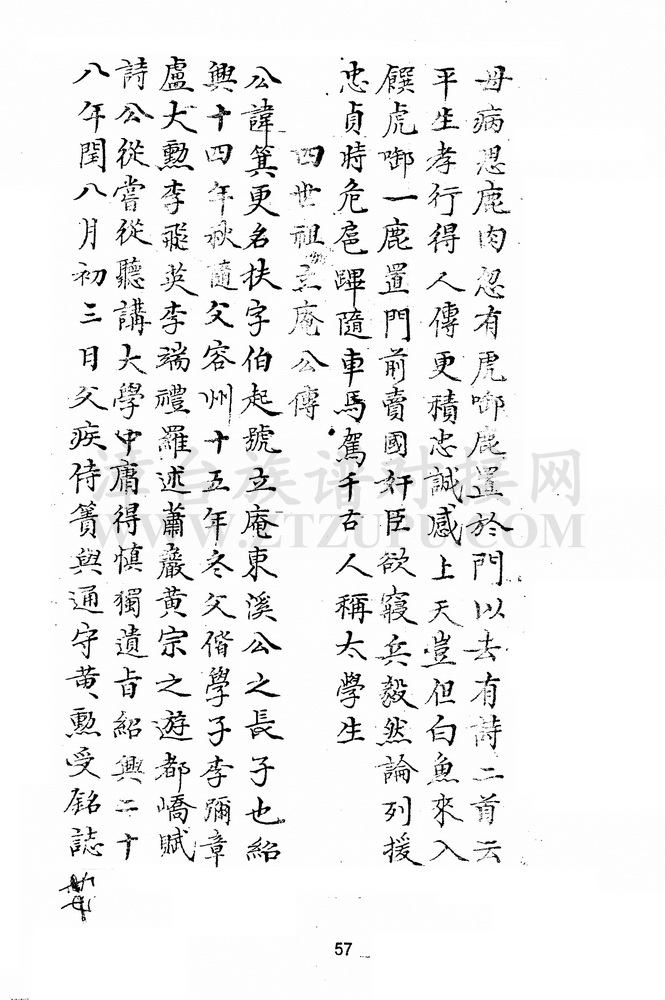 母病思鹿肉忽有虎啣鹿置於門以去有詩二首云
平生孝行得人傳更積忠誠感上天豈但白魚來入
饌虎啣一鹿置門前賣國奸臣欲窮兵毅然論列援
忠貞時危扈蹕隨車馬駕千古人稱太學生
四世祖立庵公傳
公諱箕更名扶字伯起號立庵東溪公之長子也紹
興十四年秋隨父容州十五年冬父偕學子李彌章
盧大勲李飛英李端禮羅述蕭巖黃宗之遊都嶠賦
詩公從嘗從聽講大學中庸得慎獨遺旨紹興二十
八年閏八月初三日父疾侍簀與通守黃勲受銘誌
漳台族谱对接网
WWW.ZTZUPU.COM
57